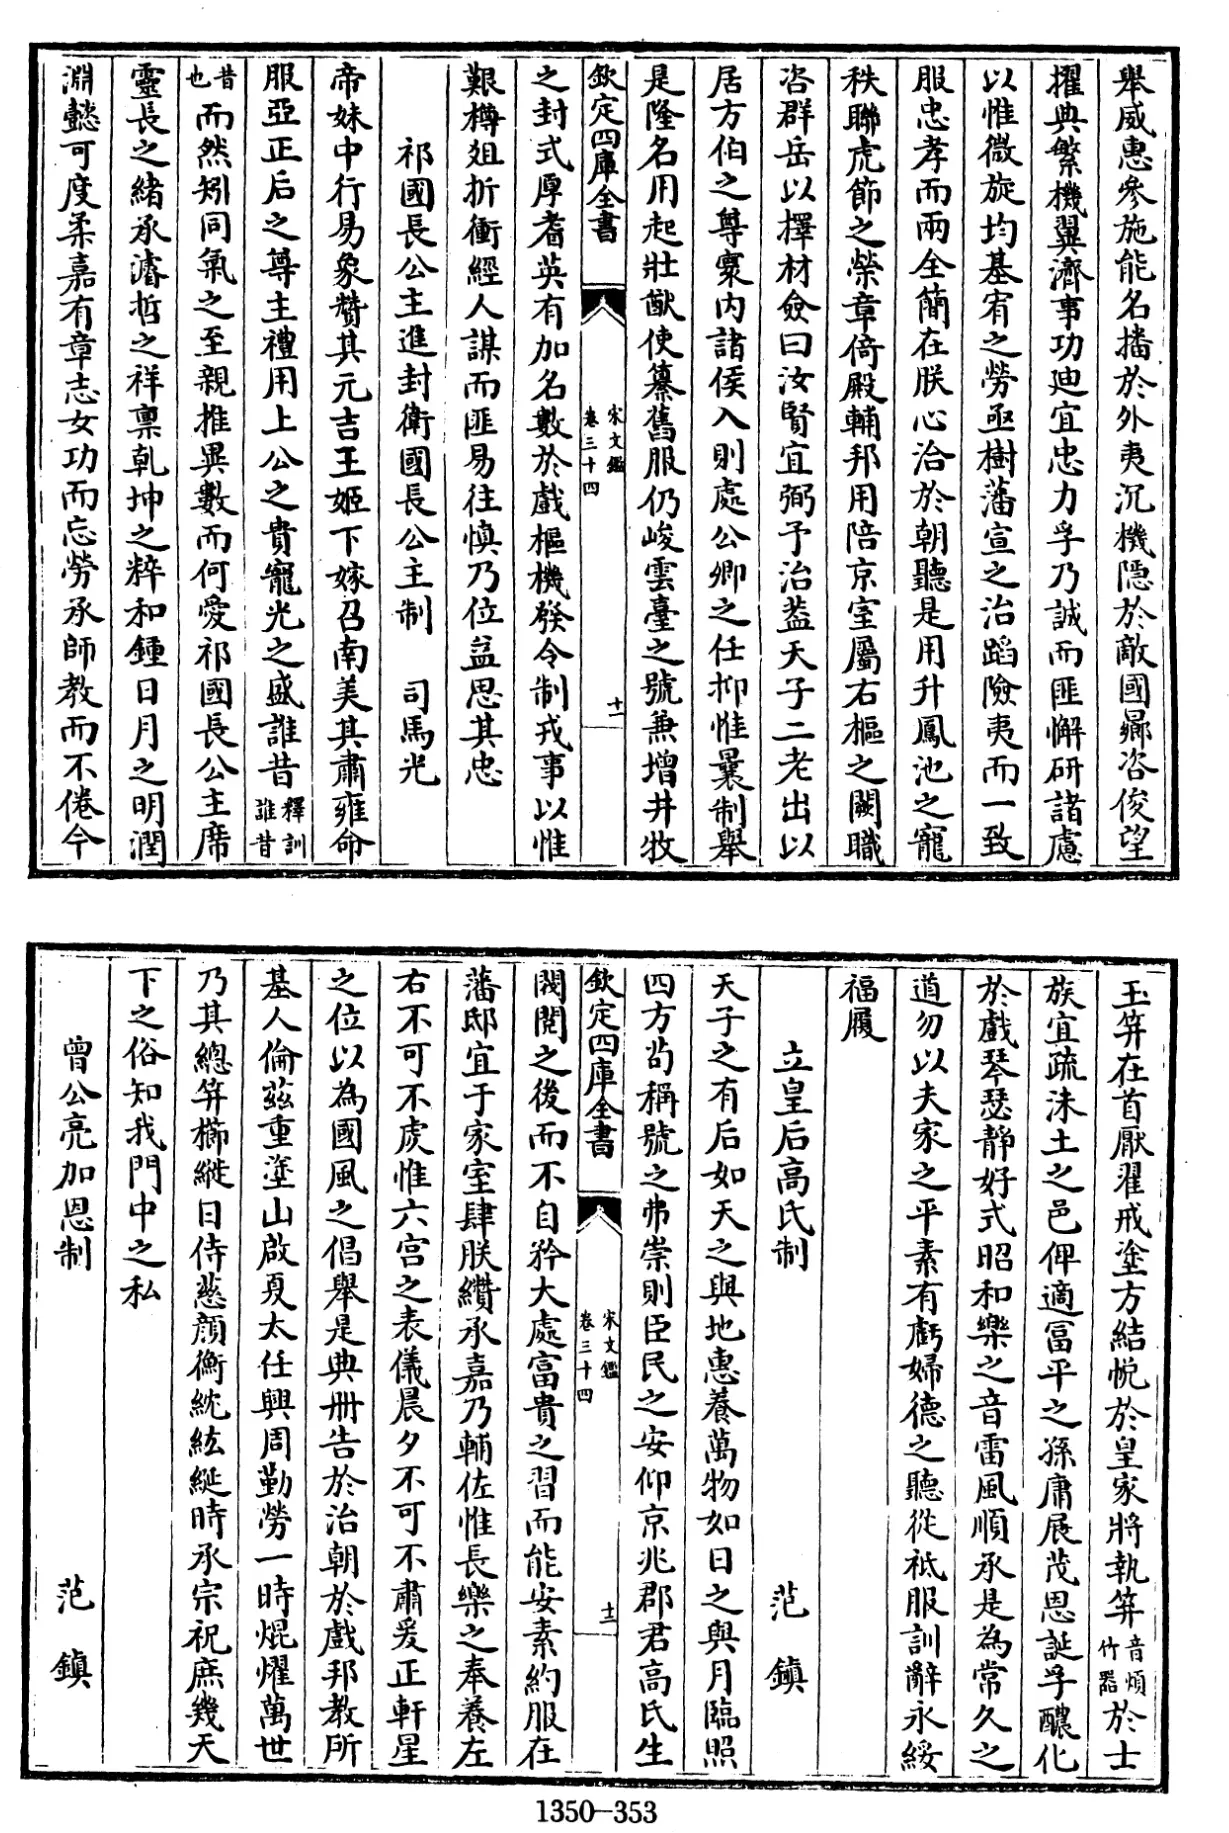 舉威惠參施能名播於外夷沉機隠於敵國鼎咨俊望
擢典繁機翼濟事功廸宜忠力孚乃誠而匪懈研諸慮
以惟微旋均基宥之勞亟樹藩宣之治蹈險夷而一致
服忠孝而兩全簡在朕心洽於朝聽是用升鳳池之寵
秩聯虎節之榮章倚殿輔邦用陪京室屬右樞之闕職
咨群岳以擇材僉曰汝賢宜弼予治葢天子二老出以
居方伯之尊寰内諸侯入則處公卿之任抑惟曩制舉
是隆名用起壯猷使纂舊服仍峻雲臺之號兼增井牧
欽定四庫全書
宋文鑑
卷三十四
十一
之封式厚耆英有加名數於戲樞機發令制戎事以惟
艱樽俎折衝經人謀而匪易往慎乃位益思其忠
祁國長公主進封衛國長公主制 司馬光
帝妹中行易象贊其元吉王姬下嫁召南美其肅雍命
服亞正后之尊主禮用上公之貴寵光之盛誰昔釋訓誰昔
昔也而然矧同氣之至親推異數而何愛祁國長公主席
靈長之緒承濬哲之祥禀乾坤之粹和鍾日月之明潤
淵懿可度柔嘉有章志女功而忘勞承師教而不倦今
玉笄在首厭翟戒塗方結悅於皇家將執笲音煩竹器於士
族宜疏沬土之邑俾適富平之孫庸展茂恩誕孚醲化
於戲琴瑟靜好式昭和樂之音雷風順承是為常久之
道勿以夫家之平素有虧婦德之聽從祗服訓辭永綏
福履
立皇后高氏制 范鎮
天子之有后如天之與地惠養萬物如日之與月臨照
四方茍稱號之弗崇則臣民之安仰京兆郡君高氏生
欽定四庫全書
宋文鑑
卷三十四
十二
閥閱之後而不自矜大處富貴之習而能安素約服在
藩邸宜于家室肆朕纘承嘉乃輔佐惟長樂之奉養左
右不可不虔惟六宫之表儀晨夕不可不肅爰正軒星
之位以為國風之倡舉是典冊告於治朝於戲邦教所
基人倫兹重塗山啟夏太任興周勤勞一時焜燿萬世
乃其總笄櫛縰日侍慈顔衡紞紘綖時承宗祝庶幾天
下之俗知我門中之私
曾公亮加恩制 范鎮
1350-353